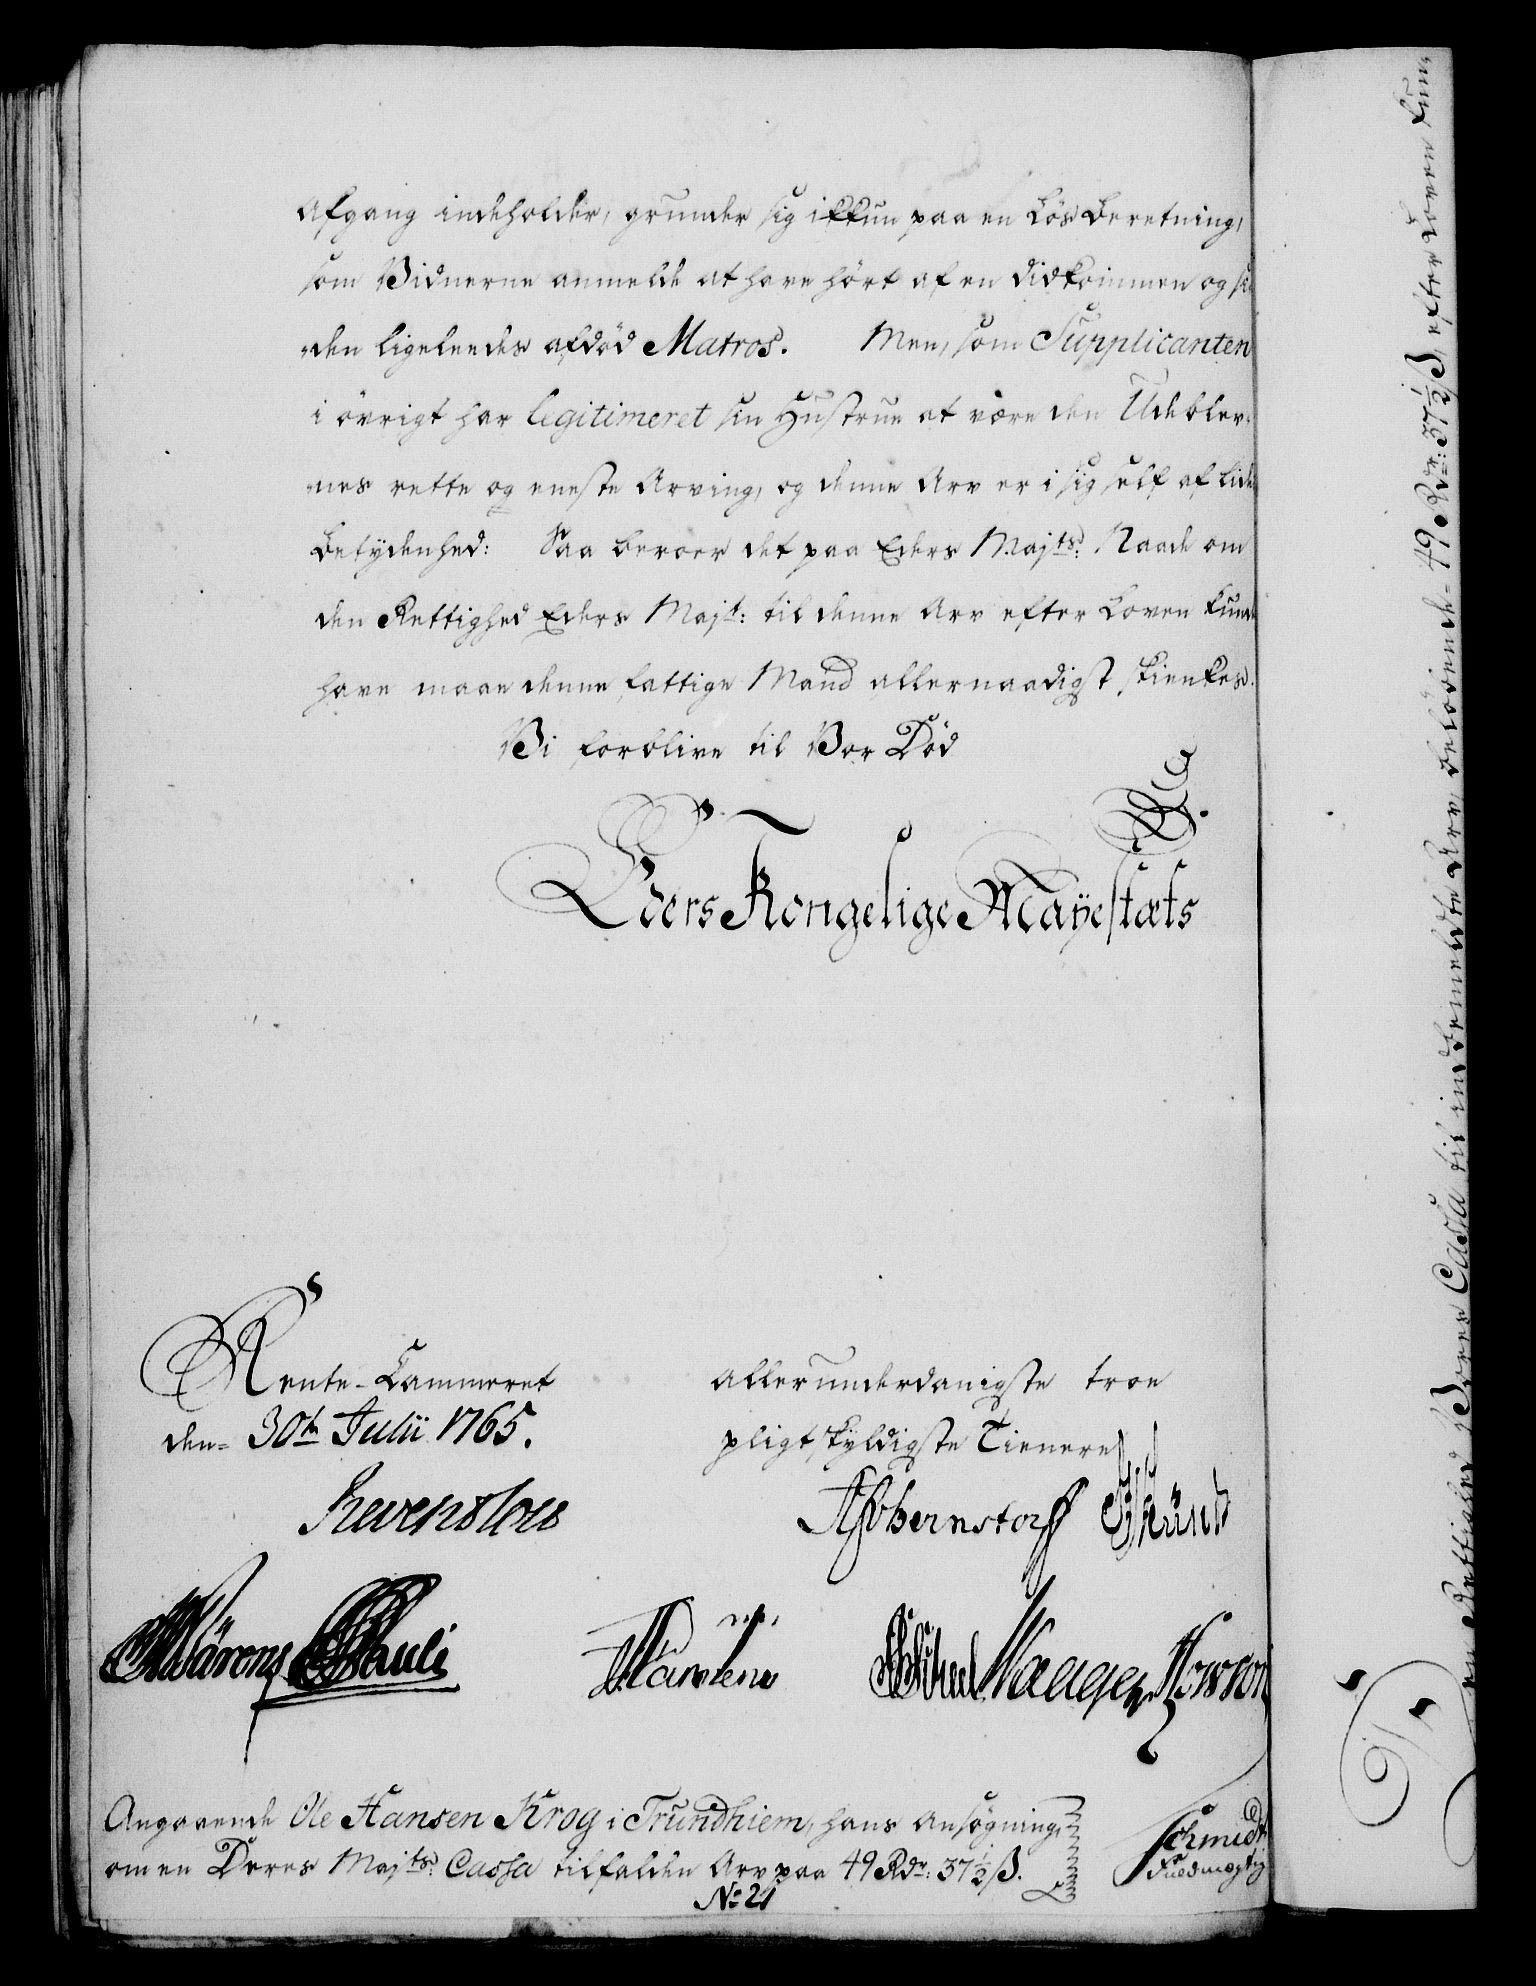 Afgang indeholder, grunder sig ikkun paa en lös Beretning,
som Vidnerne anmelde at have hört af en didkommen og si-
den ligeleedes afdöd Matros. Men, som Supplicanten
i övrigt har legitimeret sin Hustrue at være den Udeblev-
nes rette og eneste Arving, og denne Arv er i sig self af liden
Betydenhed: Saa beroer det paa Eders Majts: Naade om
den Rettighed Eders Majt: til denne Arv efter Loven kunde
have maae denne fattige Mand allernaadigst skienkes.
Vi forblive til Vor Död
Eders Kongelige Mayestæts
Rente-Cammeret
den 30te Julii 1765.
allerunderdanigste troe
pligtskyldigste Tienere
Reventlow
AGvBernstorff
Wärens Pauli
Martens
Wleugel
Schmidt
Fuldmægtig
Angaaende Ole Hansen Krog i Trundhiem, hans Ansögning,
om en Deres Majts: Cassa tilfalden Arv paa 49 Rdr: 37½ ß.
No 21
en Rettighed Vores Cassa til indbemeldte Arv, belöbende 49 Rdr: 37½ ß, efter Loven kun-